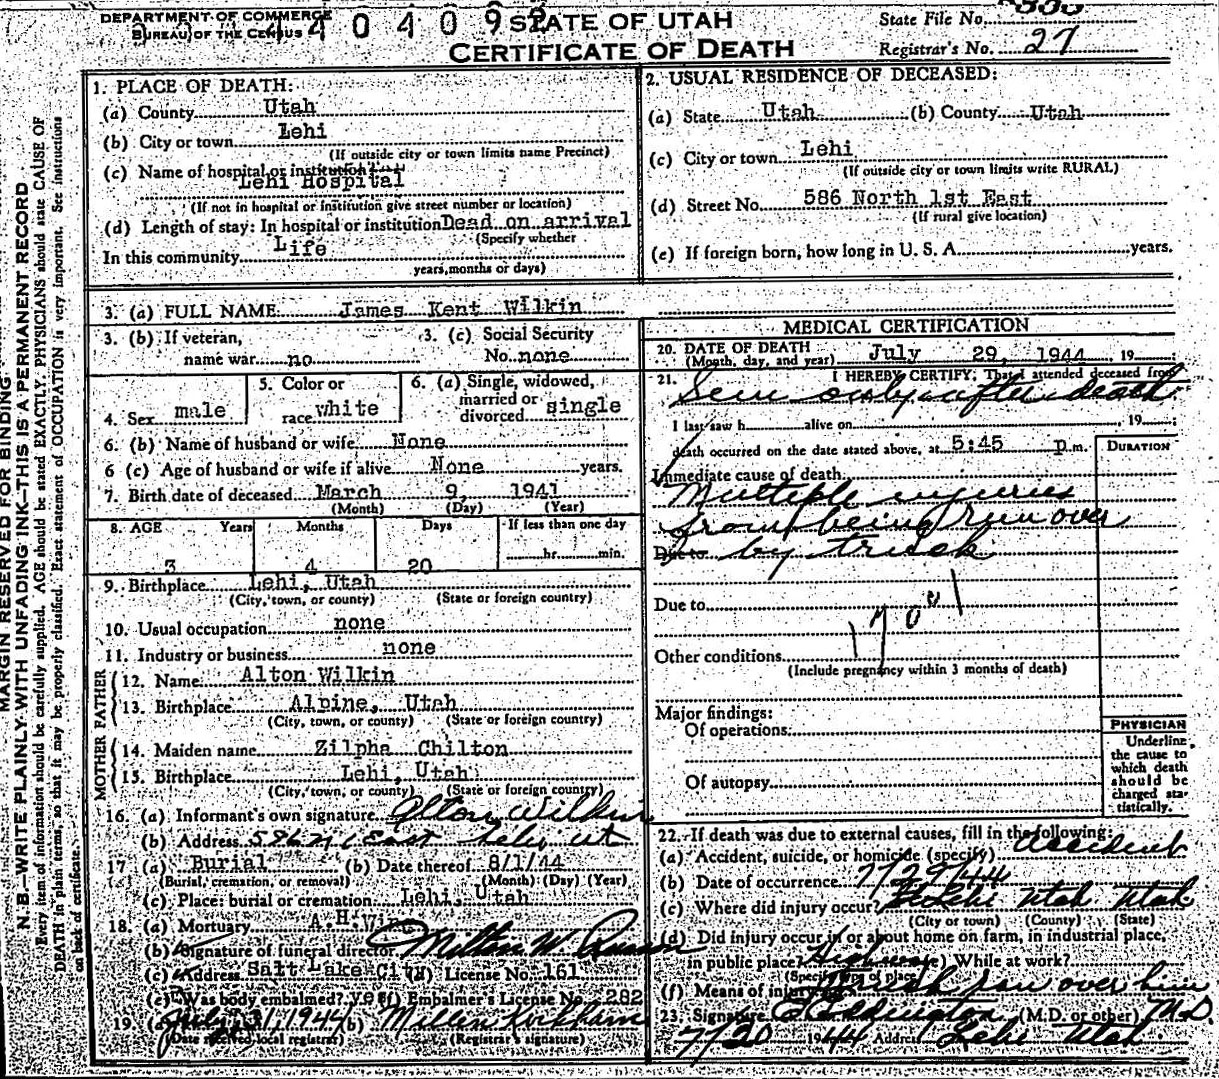 DEPARTMENT OF COMMERCE
BUREAU OF THE CENSUS
4 0 4 0 9 2
STATE OF UTAH
CERTIFICATE OF DEATH
State File No.
Registrar's No. 27
MARGIN RESERVED FOR BINDING
N. B.—WRITE PLAINLY WITH UNFADING INK—THIS IS A PERMANENT RECORD
Every item of information should be carefully supplied. AGE should be stated EXACTLY. PHYSICIANS should state CAUSE OF
DEATH in plain terms, so that it may be properly classified. Exact statement of OCCUPATION is very important. See instructions
on back of certificate.
1. PLACE OF DEATH:
(a) County Utah
(b) City or town Lehi
(If outside city or town limits name Precinct)
(c) Name of hospital or institution
Lehi Hospital
(If not in hospital or institution give street number or location)
(d) Length of stay: In hospital or institution Dead on arrival
(Specify whether
In this community Life
years, months or days)
2. USUAL RESIDENCE OF DECEASED:
(a) State Utah (b) County Utah
(c) City or town Lehi
(If outside city or town limits write RURAL)
(d) Street No. 586 North 1st East
(If rural give location)
(e) If foreign born, how long in U. S. A. years.
3. (a) FULL NAME James Kent Wilkin
3. (b) If veteran, name war no
3. (c) Social Security No. none
4. Sex male
5. Color or race white
6. (a) Single, widowed, married or divorced single
6. (b) Name of husband or wife None
6 (c) Age of husband or wife if alive None years.
7. Birth date of deceased March 9, 1941
(Month) (Day) (Year)
8. AGE Years Months Days If less than one day
3 4 20 hr. min.
9. Birthplace Lehi, Utah
(City, town, or county) (State or foreign country)
10. Usual occupation none
11. Industry or business none
FATHER
12. Name Alton Wilkin
13. Birthplace Alpine, Utah
(City, town, or county) (State or foreign country)
MOTHER
14. Maiden name Zilpha Chilton
15. Birthplace Lehi, Utah
(City, town, or county) (State or foreign country)
16. (a) Informant's own signature Alton Wilkin
(b) Address 586 N 1 East Lehi Ut
17 (a) Burial (b) Date thereof 8/1/44
(Burial, cremation, or removal) (Month) (Day) (Year)
(c) Place: burial or cremation Lehi, Utah
18. (a) Mortuary A.H. Wing
(b) Signature of funeral director Milton W.
(c) Address Salt Lake City (d) License No. 161
(e) Was body embalmed? yes (f) Embalmer's License No. 282
19. (a) July 31, 1944 (b) Millen Kirkham
(Date received local registrar) (Registrar's signature)
MEDICAL CERTIFICATION
20. DATE OF DEATH
(Month, day, and year) July 29, 1944, 19
21. I HEREBY CERTIFY, That I attended deceased from
Seen only after death
I last saw h alive on , 19
death occurred on the date stated above, at 5:45 p.m.
DURATION
Immediate cause of death
Multiple injuries
from being run over
Due to by truck
Due to
170c1
Other conditions
(Include pregnancy within 3 months of death)
Major findings:
Of operations:
Of autopsy
PHYSICIAN
Underline
the cause to
which death
should be
charged sta-
tistically.
22. If death was due to external causes, fill in the following:
(a) Accident, suicide, or homicide (specify) Accident
(b) Date of occurrence 7/29/44
(c) Where did injury occur? Lehi Utah Utah
(City or town) (County) (State)
(d) Did injury occur in or about home on farm, in industrial place,
in public place? Highway (e) While at work?
(Specify type of place
(f) Means of injury Truck ran over him
23. Signature Eddington (M.D. or other) M.D.
7/30 1944 Address Lehi Utah